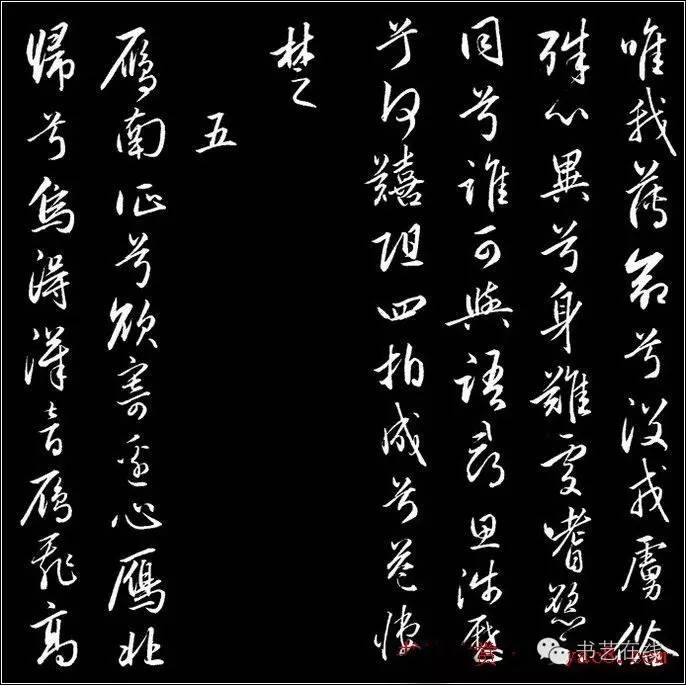 唯我薄命兮没戎虜俗
殊心異兮身難處嗜慾
同兮誰可與語尋思涉歷
兮何囏阻四拍成兮益悽
楚
五
鴈南征兮欲寄邊心鴈北
歸兮為得漢音鴈飛高
书艺在线